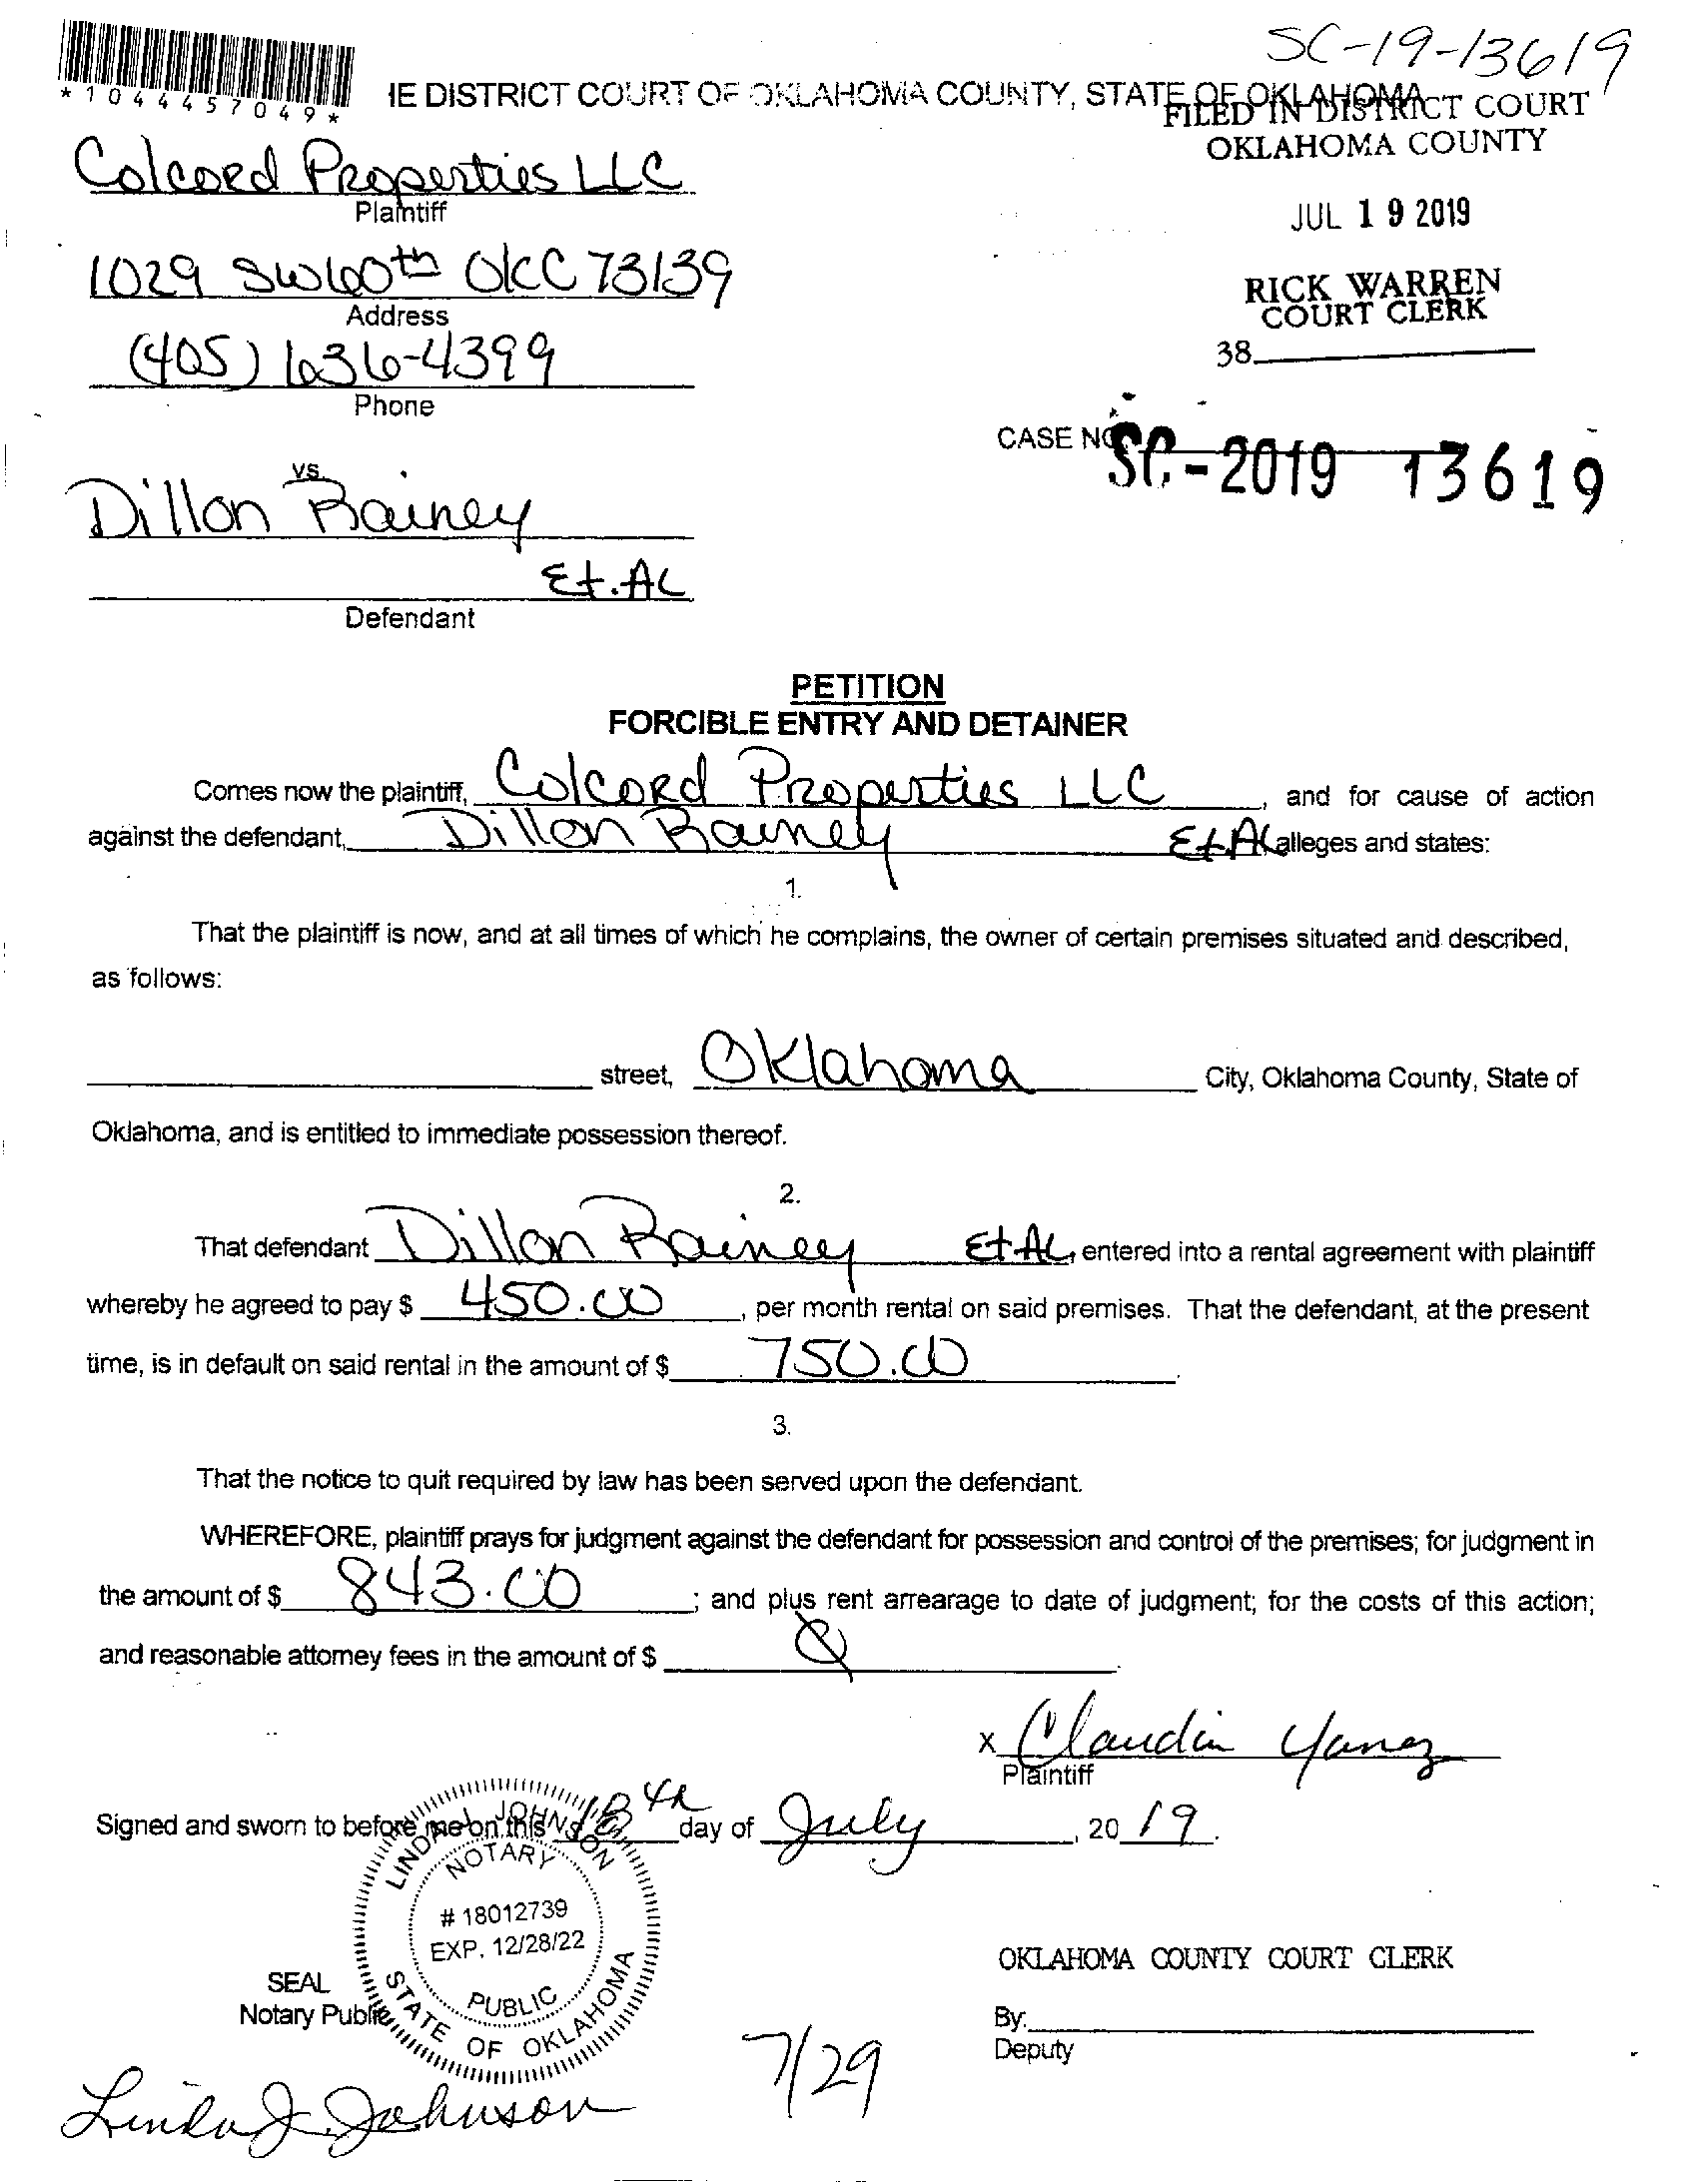 SC-19-13619
*1044457049*
IE DISTRICT COURT OF OKLAHOMA COUNTY, STATE OF OKLAHOMA
FILED IN DISTRICT COURT
OKLAHOMA COUNTY
Colcord Properties LLC
Plaintiff
JUL 19 2019
1029 SW 60th OKC 73139
Address
RICK WARREN
COURT CLERK
(405) 636-4399
38
Phone
CASE NO. SC-2019 13619
vs.
Dillon Rainey
Et.AL
Defendant
PETITION
FORCIBLE ENTRY AND DETAINER
Comes now the plaintiff, Colcord Properties LLC, and for cause of action
against the defendant, Dillon Rainey Et.AL alleges and states:
1.
That the plaintiff is now, and at all times of which he complains, the owner of certain premises situated and described,
as follows:
street, Oklahoma City, Oklahoma County, State of
Oklahoma, and is entitled to immediate possession thereof.
2.
That defendant Dillon Rainey Et AL, entered into a rental agreement with plaintiff
whereby he agreed to pay $ 450.00, per month rental on said premises. That the defendant, at the present
time, is in default on said rental in the amount of $ 750.00.
3.
That the notice to quit required by law has been served upon the defendant.
WHEREFORE, plaintiff prays for judgment against the defendant for possession and control of the premises; for judgment in
the amount of $ 843.00; and plus rent arrearage to date of judgment; for the costs of this action;
and reasonable attorney fees in the amount of $
x Claudia Yanez
Plaintiff
Signed and sworn to before me on this 18th day of July, 2019.
LINDA J. JOHNSON
NOTARY
# 18012739
EXP. 12/28/22
PUBLIC
STATE OF OKLAHOMA
SEAL
Notary Public
OKLAHOMA COUNTY COURT CLERK
By:
Deputy
7/29
Linda J. Johnson